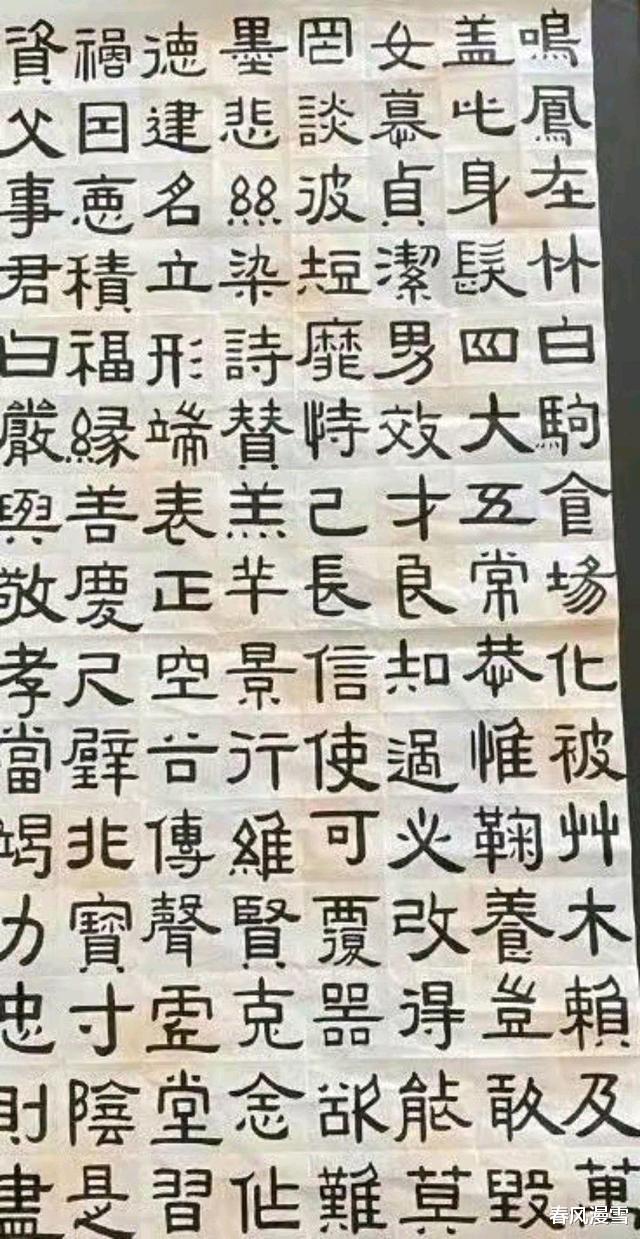 鳴鳳在竹白駒食場化被艸木賴及萬
盖此身髮四大五常恭惟鞠養豈敢毀
女慕貞潔男效才良知過必改得能莫
罔談彼短靡恃己長信使可覆器欲難
墨悲絲染詩贊羔羊景行維賢克念作
德建名立形端表正空谷傳聲虛堂習
禍因惡積福緣善慶尺璧非寶寸陰是
資父事君曰嚴與敬孝當竭力忠則盡
春风漫雪